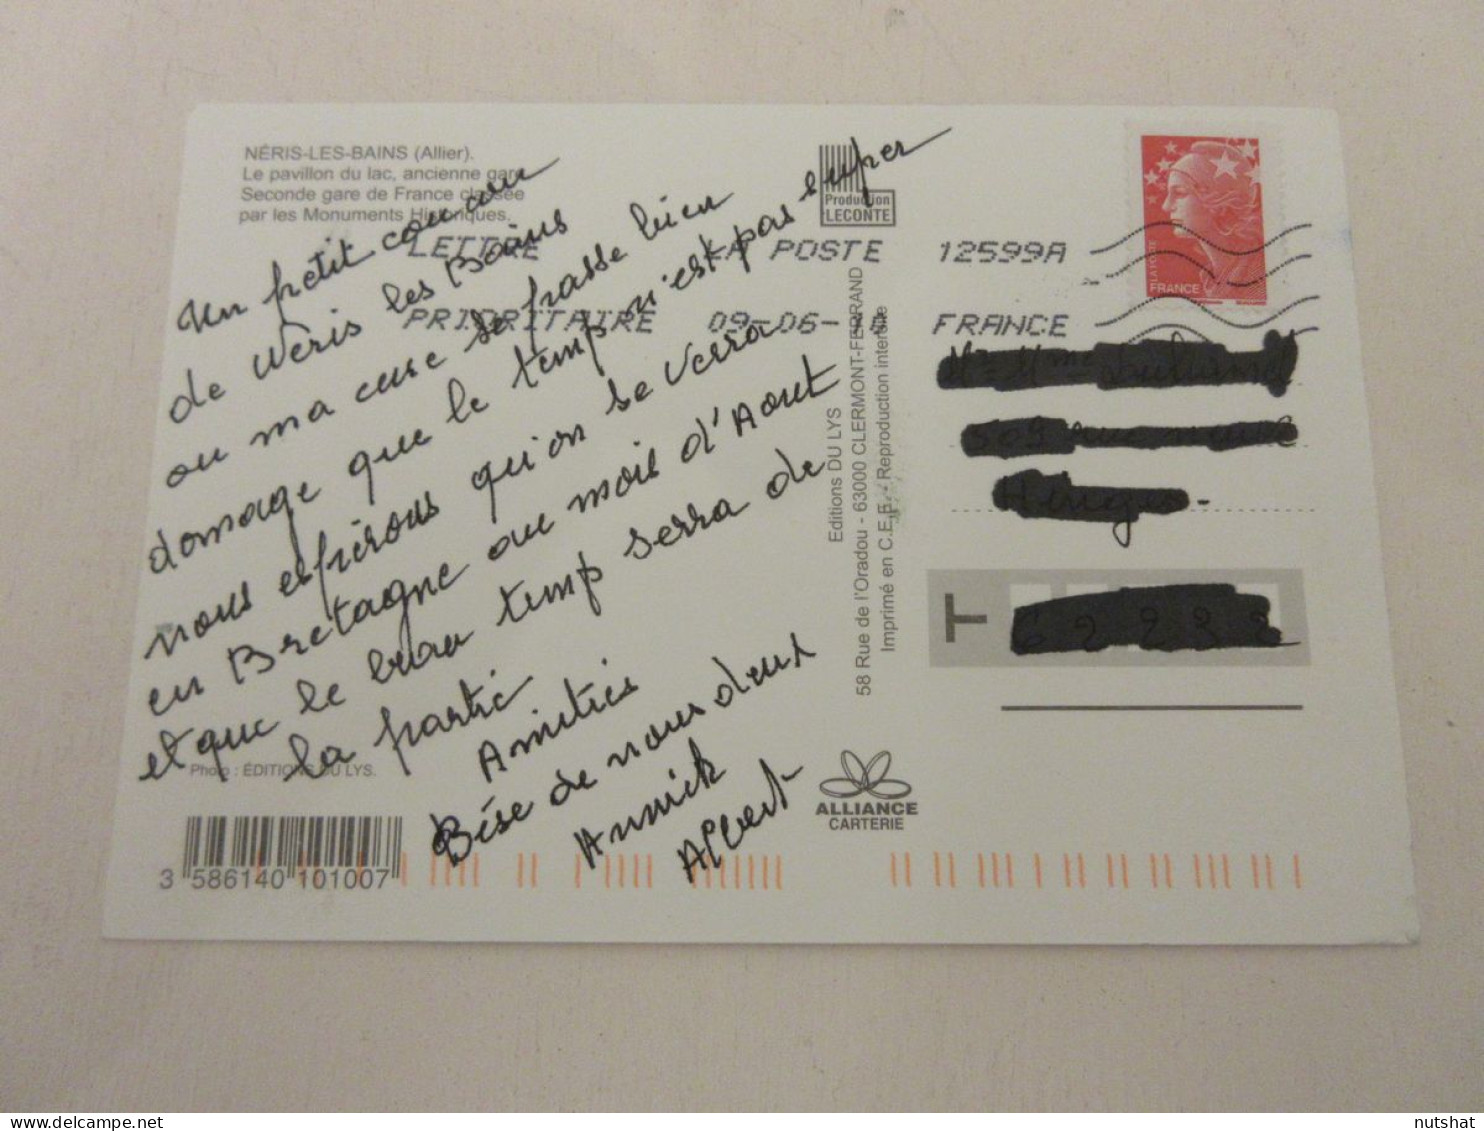 NÉRIS-LES-BAINS (Allier).
Le pavillon du lac, ancienne gare
Seconde gare de France classée
par les Monuments Historiques.
Production
LECONTE
LETTRE LA POSTE 12599A
PRIORITAIRE 09-06-10 FRANCE
LA POSTE
FRANCE
Un petit coucou
de Neris les Bains
ou ma cure se passe bien
domage que le temp n'est pas super
nous espérous qu'on se verra
en Bretagne au mois d'Aout
et que le beau temp serra de
la partie
Amitiés
Bise de nous deux
Annick
Albert
Photo : ÉDITIONS DU LYS.
3 586140 101007
Editions DU LYS
58 Rue de l'Oradou - 63000 CLERMONT-FERRAND
Imprimé en C.E.E. - Reproduction interdite
T
ALLIANCE
CARTERIE
nutshat